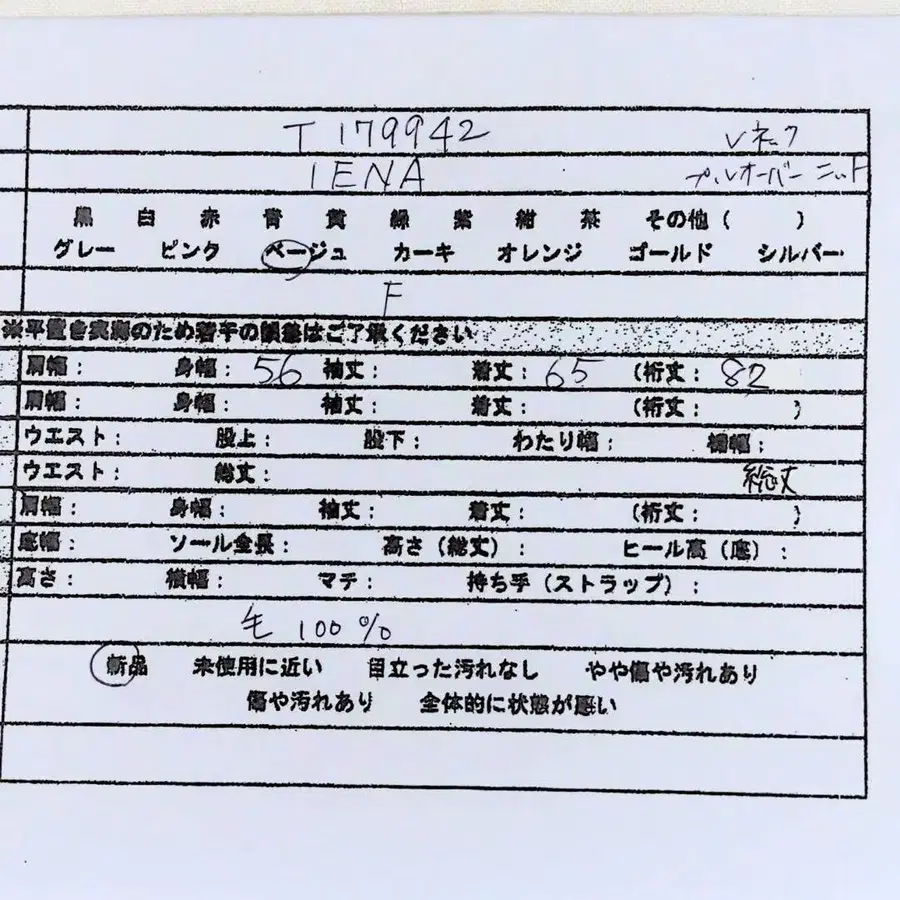 T179942 Vネック
IENA プルオーバーニット
黒 白 赤 青 黄 緑 紫 紺 茶 その他( )
グレー ピンク ベージュ カーキ オレンジ ゴールド シルバー
F
※平置き実測のため若干の誤差はご了承ください
肩幅: 身幅: 56 袖丈: 着丈: 65 (裄丈: 82
肩幅: 身幅: 袖丈: 着丈: (裄丈: )
ウエスト: 股上: 股下: わたり幅: 裾幅:
ウエスト: 総丈: 総丈
肩幅: 身幅: 袖丈: 着丈: (裄丈: )
底幅: ソール全長: 高さ(総丈): ヒール高(底):
高さ: 横幅: マチ: 持ち手(ストラップ):
毛 100%
新品 未使用に近い 目立った汚れなし やや傷や汚れあり
傷や汚れあり 全体的に状態が悪い